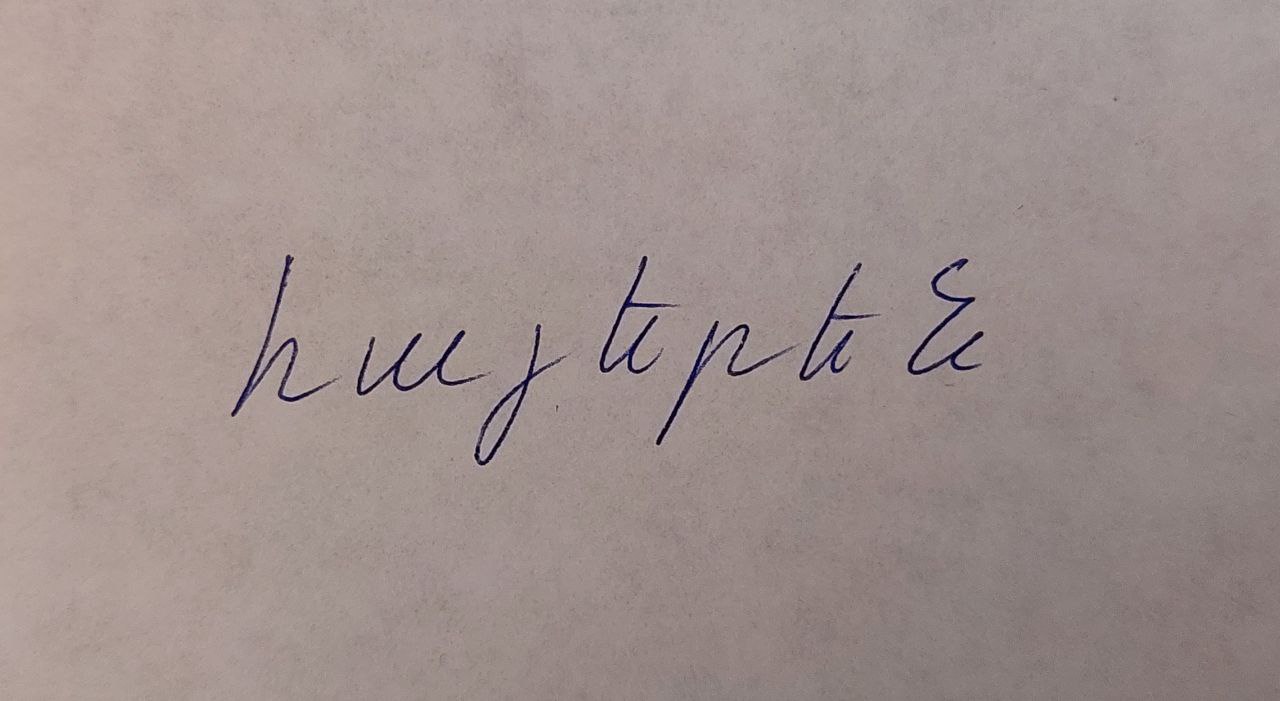 հայերեն